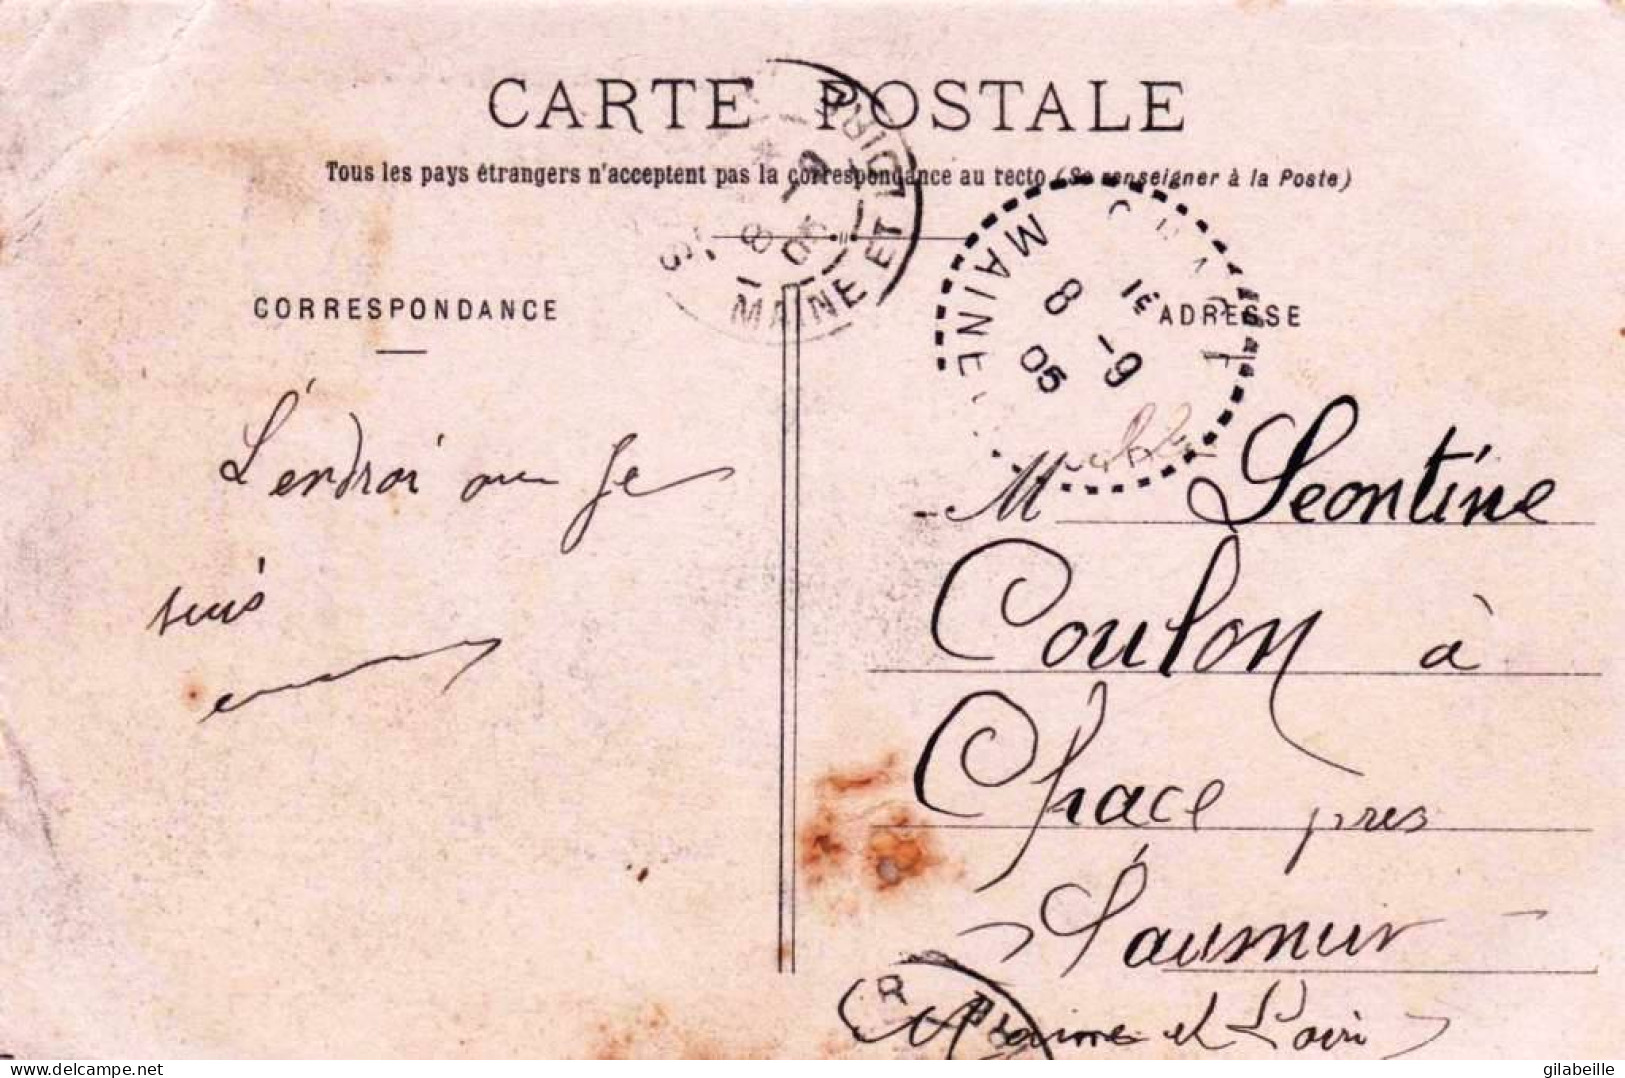 CARTE POSTALE
Tous les pays étrangers n'acceptent pas la correspondance au recto (Se renseigner à la Poste)
MAINE ET LOIRE
8 -9
05
MAINE
1E
8 -9
05
CORRESPONDANCE
ADRESSE
L'endroi ou Je
suis
M Leontine
Coulon à
Chacé pres
Saumur
Maine et Loire
delcampe.net
gilabeille